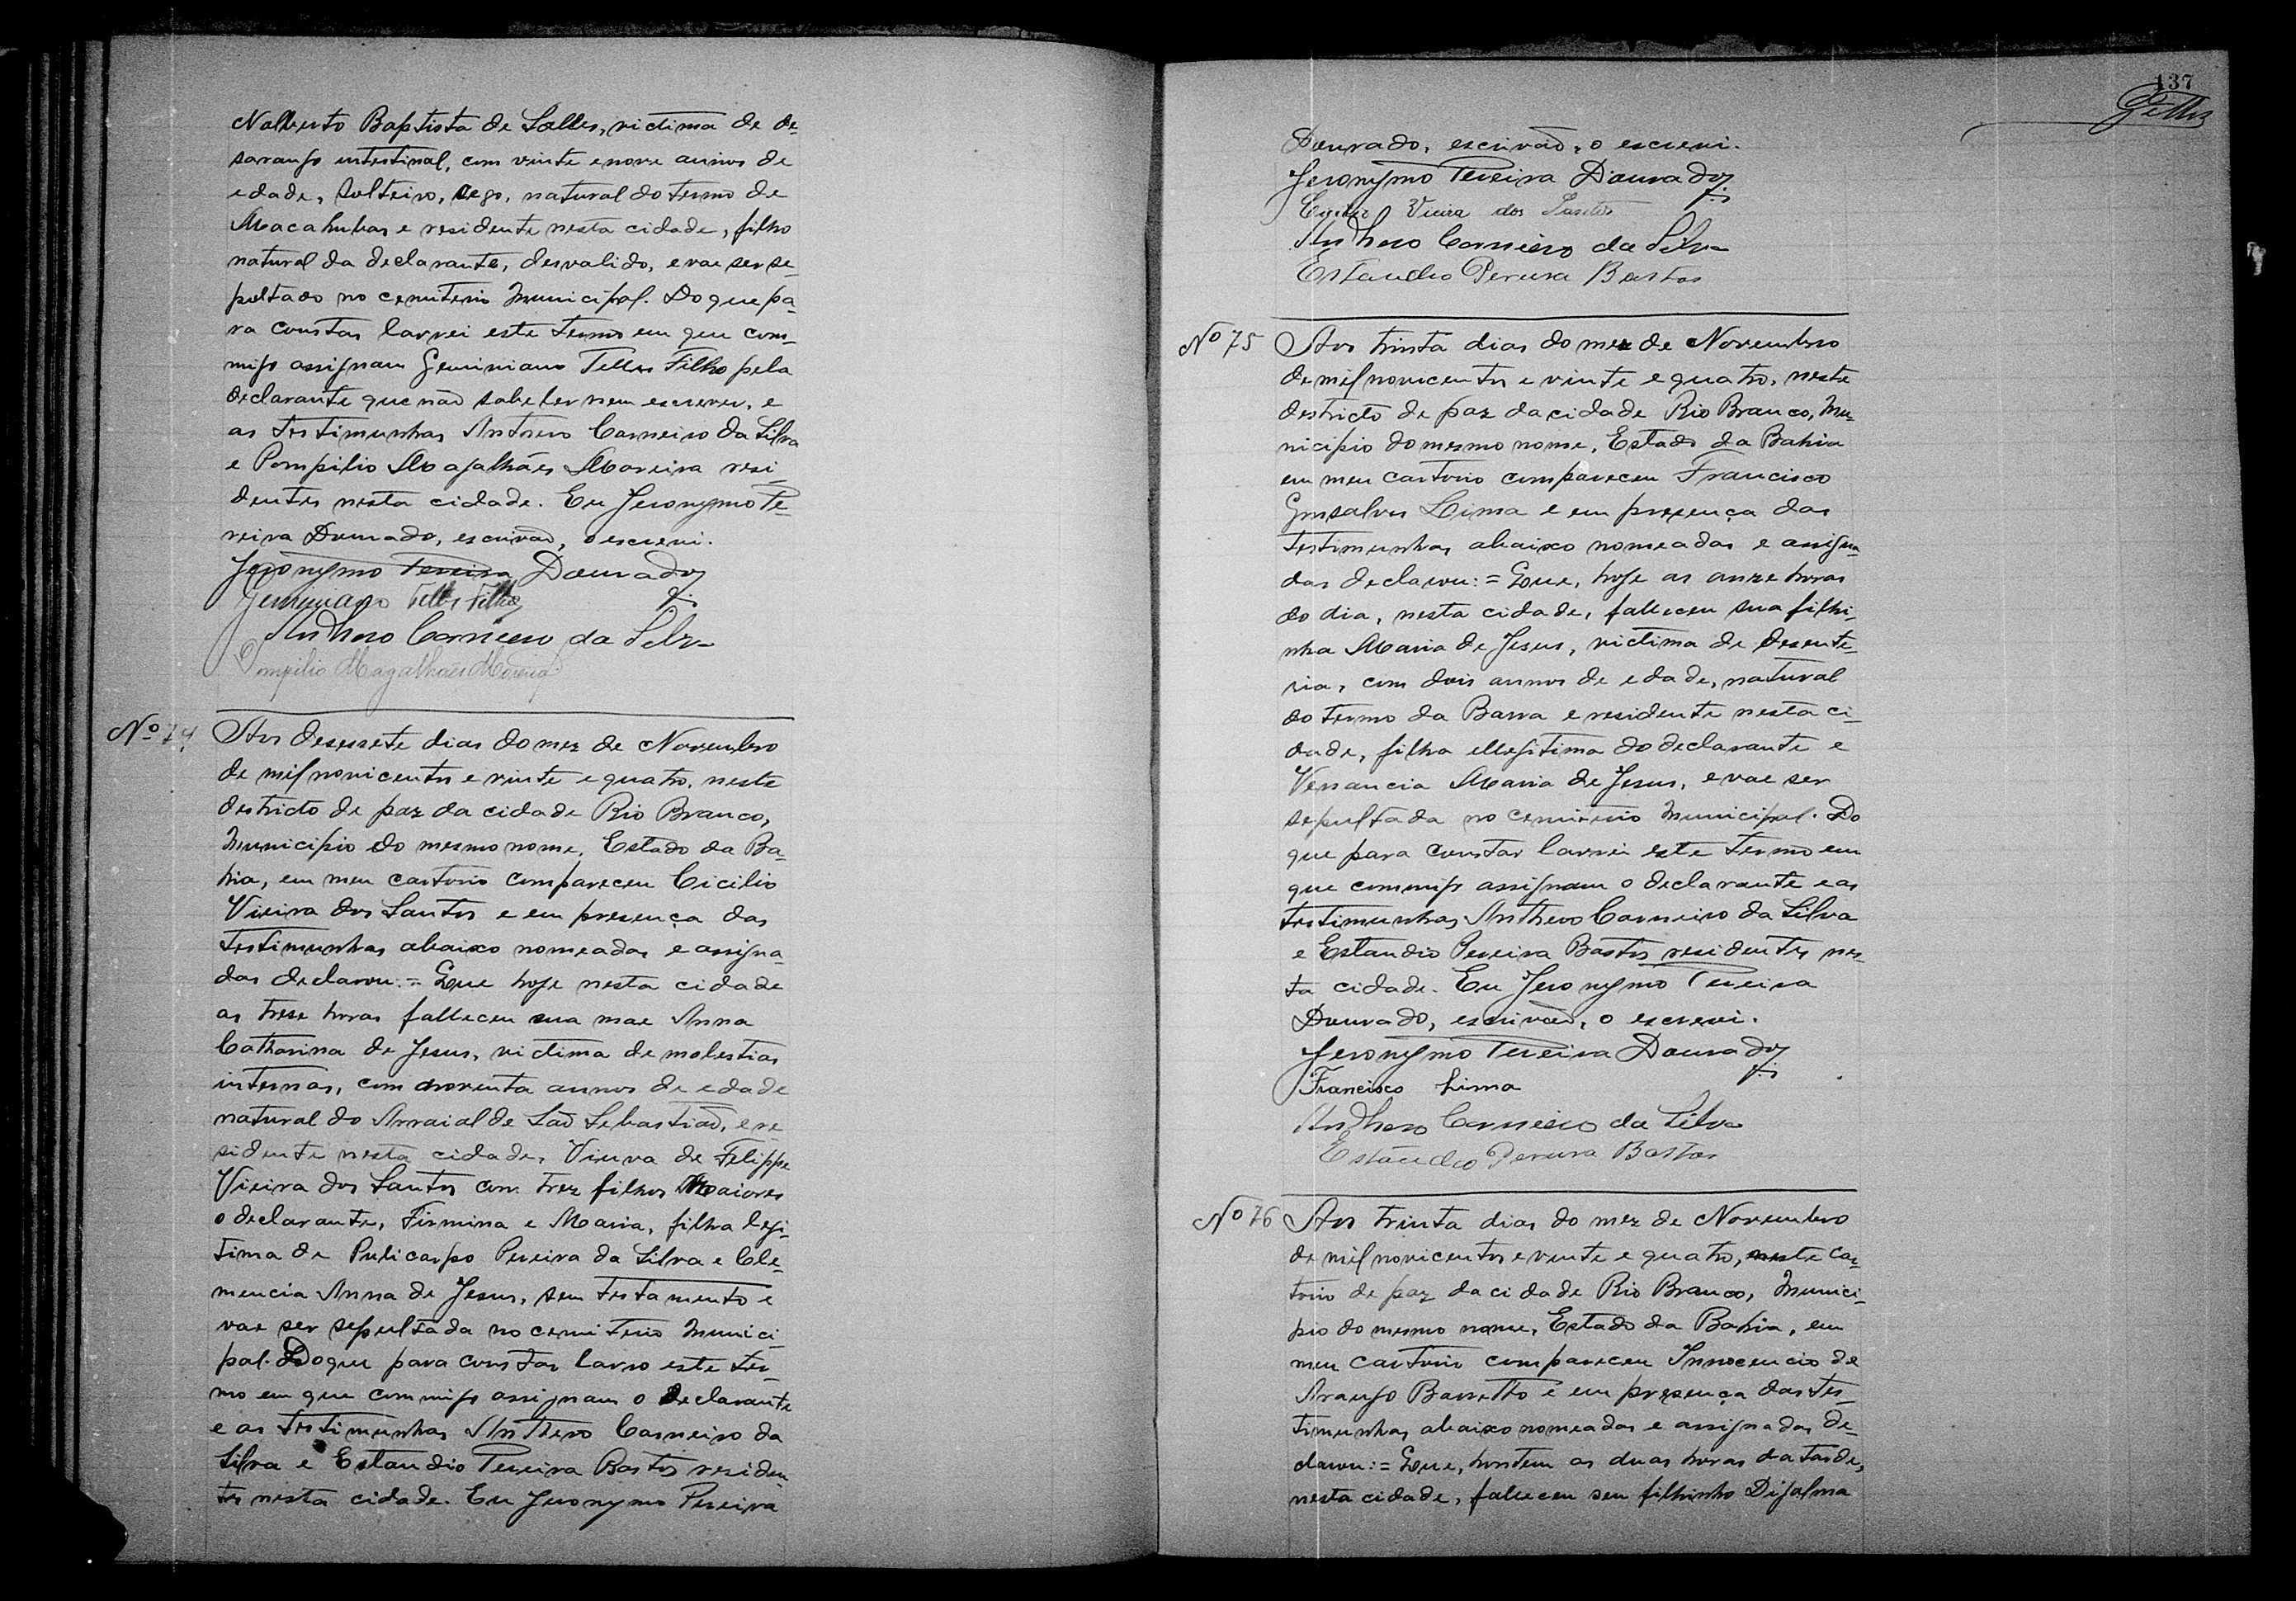 Nalberto Baptista de Salles, victima de de-
saranjo intestinal, com vinte e nove annos de
edade, solteiro, cego, natural do termo de
Macahubas e residente nesta cidade, filho
natural da declarante, desvalido, e vae ser se-
pultado no cemiterio Municipal. Do que pa-
ra constar lavrei este termo em que com-
migo assignam Geminiano Telles Filho pela
declarante que não sabe ler nem escrever, e
as testimunhas Anthero Carneiro da Silva
e Pompilio Magalhães Moreira resi-
dentes nesta cidade. Eu Jeronymo Pe-
reira Dourado, escrivão, o escrevi.
Jeronymo Pereira Dourado
Geminiano Telles Filho
Anthero Carneiro da Silva
Pompilio Magalhães Moreira
Nº 74 Aos desessete dias do mez de Novembro
de mil novicentos e vinte e quatro, neste
destricto de paz da cidade Rio Branco,
Municipio do mesmo nome, Estado da Ba-
hia, em meu cartorio compareceu Cicilio
Vieira dos Santos e em presença das
testimunhas abaixo nomeadas e assigna-
das declarou: = Que hoje nesta cidade
as trese horas falleceu sua mae Anna
Catharina de Jesus, victima de molestias
internas, com noventa annos de edade
natural do Arraial de São Sebastião, e re-
sidente nesta cidade, Viuva de Filippe
Vieira dos Santos com trez filhos Maiores
o declarante, Firmina e Maria, filha legi-
tima de Pulicarpo Pereira da Silva e Cle-
mencia Anna de Jesus, sem testamento e
vae ser sepultada no cemiterio Munici-
pal. Do que para constar lavro este ter-
mo em que commigo assignam o declarante
e as testimunhas Anthero Carneiro da
Silva e Estaudio Pereira Bastos residen-
tes nesta cidade. Eu Jeronymo Pereira
137
Telles
Dourado, escrivão, o escrevi.
Jeronymo Pereira Dourado
Vieira dos Santos
Anthero Carneiro da Silva
Estaudio Pereira Bastos
Nº 75 Aos trinta dias do mez de Novembro
de mil novicentos e vinte e quatro, neste
destricto de paz da cidade Rio Branco, Mu-
nicipio do mesmo nome, Estado da Bahia
em meu cartorio compareceu Francisco
Gonsalves Lima e em presença das
testimunhas abaixo nomeadas e assigna-
das declarou: = Que, hoje as onze horas
do dia, nesta cidade, falleceu sua filhi-
nha Maria de Jesus, victima de desente-
ria, com dois annos de edade, natural
do termo da Barra e residente nesta ci-
dade, filha illegitima do declarante e
Venancia Maria de Jesus, e vae ser
sepultada no cemiterio Municipal. Do
que para constar lavrei este termo em
que commigo assignam o declarante e as
testimunhas Anthero Carneiro da Silva
e Estaudio Pereira Bastos residentes nes-
ta cidade. Eu Jeronymo Pereira
Dourado, escrivão, o escrevi.
Jeronymo Pereira Dourado
Francisco Lima
Anthero Carneiro da Silva
Estaudio Pereira Bastos
Nº 76 Aos trinta dias do mez de Novembro
de mil novicentos e vinte e quatro, neste car-
torio de paz da cidade Rio Branco, Munici-
pio do mesmo nome, Estado da Bahia, em
meu cartorio compareceu Innocencio de
Araujo Barretto e em presença das tes-
timunhas abaixo nomeadas e assignadas de-
clarou: = Que, hontem as duas horas da tarde,
nesta cidade, falleceu seu filhinho Dijalma